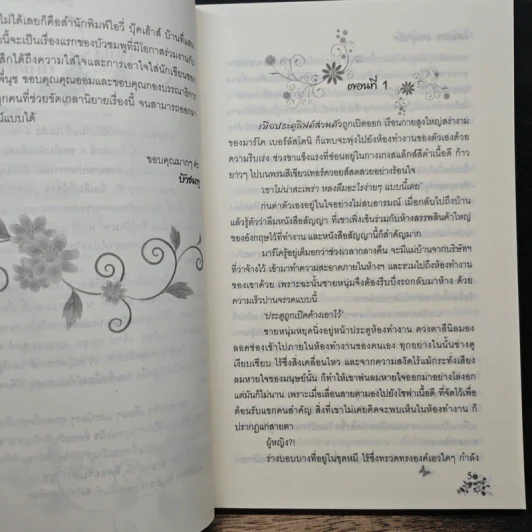 ไม่ได้เลยก็คือสำนักพิมพ์ไอวี่ บุ๊คเฮ้าส์ บ้านที่แสน
นี้จะเป็นเรื่องแรกของบัวชมพูที่มีโอกาสร่วมงานกับ
สึกได้ถึงความใส่ใจและการเอาใจใส่นักเขียนของ
พี่นุช ขอบคุณคุณออมและขอบคุณกองบรรณาธิการ
ทุกคนที่ช่วยขัดเกลานิยายเรื่องนี้ จนสามารถออกมา
ณ์แบบได้
ขอบคุณมากๆ ค่ะ
บัวชมพู
ตอนที่ 1
เมื่อประตูลิฟต์สวนตัวถูกเปิดออก เรือนกายสูงใหญ่สง่างาม
ของมาร์โค เบอร์ลัสโคนี ก็แทบจะพุ่งไปยังห้องทำงานของตัวเองด้วย
ความรีบเร่ง ช่วงขาแข็งแรงที่ซ่อนอยู่ในกางเกงสแล็กส์สีดำเนื้อดี ก้าว
ยาวๆ ไปบนพรมสีเขียวเทอร์ควอยส์สดสวยอย่างร้อนใจ
เขาไม่น่าสะเพร่า หลงลืมอะไรง่ายๆ แบบนี้เลย
ก่นด่าตัวเองอยู่ในใจอย่างไม่สบอารมณ์ เมื่อกลับไปถึงบ้าน
แล้วรู้ตัวว่าลืมหนังสือสัญญา ที่เขาเพิ่งเซ็นร่วมกับห้างสรรพสินค้าใหญ่
ของอังกฤษไว้ที่ทำงาน และหนังสือสัญญานี้ก็สำคัญมาก
มาร์โครู้อยู่เต็มอกว่าช่วงเวลากลางคืน จะมีแม่บ้านจากบริษัทฯ
ที่ว่าจ้างไว้ เข้ามาทำความสะอาดภายในห้างฯ และรวมไปถึงห้องทำงาน
ของเขาด้วย เพราะฉะนั้นชายหนุ่มจึงต้องรีบบึ่งรถกลับมาห้าง ด้วย
ความเร็วปานจรวดแบบนี้
ประตูถูกเปิดค้างเอาไว้
ชายหนุ่มหยุดนิ่งอยู่หน้าประตูห้องทำงาน ดวงตาสีนิลมอง
ลอดช่องเข้าไปภายในห้องทำงานของตนเอง ทุกอย่างในนั้นช่างดู
เงียบเชียบ ไร้ซึ่งสิ่งเคลื่อนไหว และจากความสงัดไร้แม้กระทั่งเสียง
ลมหายใจของมนุษย์นั้น ก็ทำให้เขาพ่นลมหายใจออกมาอย่างโล่งอก
แต่มันก็ไม่นาน เพราะเมื่อเลื่อนสายตามองไปยังโซฟาเนื้อดี ที่จัดไว้เพื่อ
ต้อนรับแขกคนสำคัญ สิ่งที่เขาไม่เคยคิดจะพบเห็นในห้องทำงาน ก็
ปรากฏแก่สายตา
ผู้หญิง?!
ร่างบอบบางที่อยู่ในชุดหมี ไร้ซึ่งทรวดทรงองค์เอวใดๆ กำลัง
5